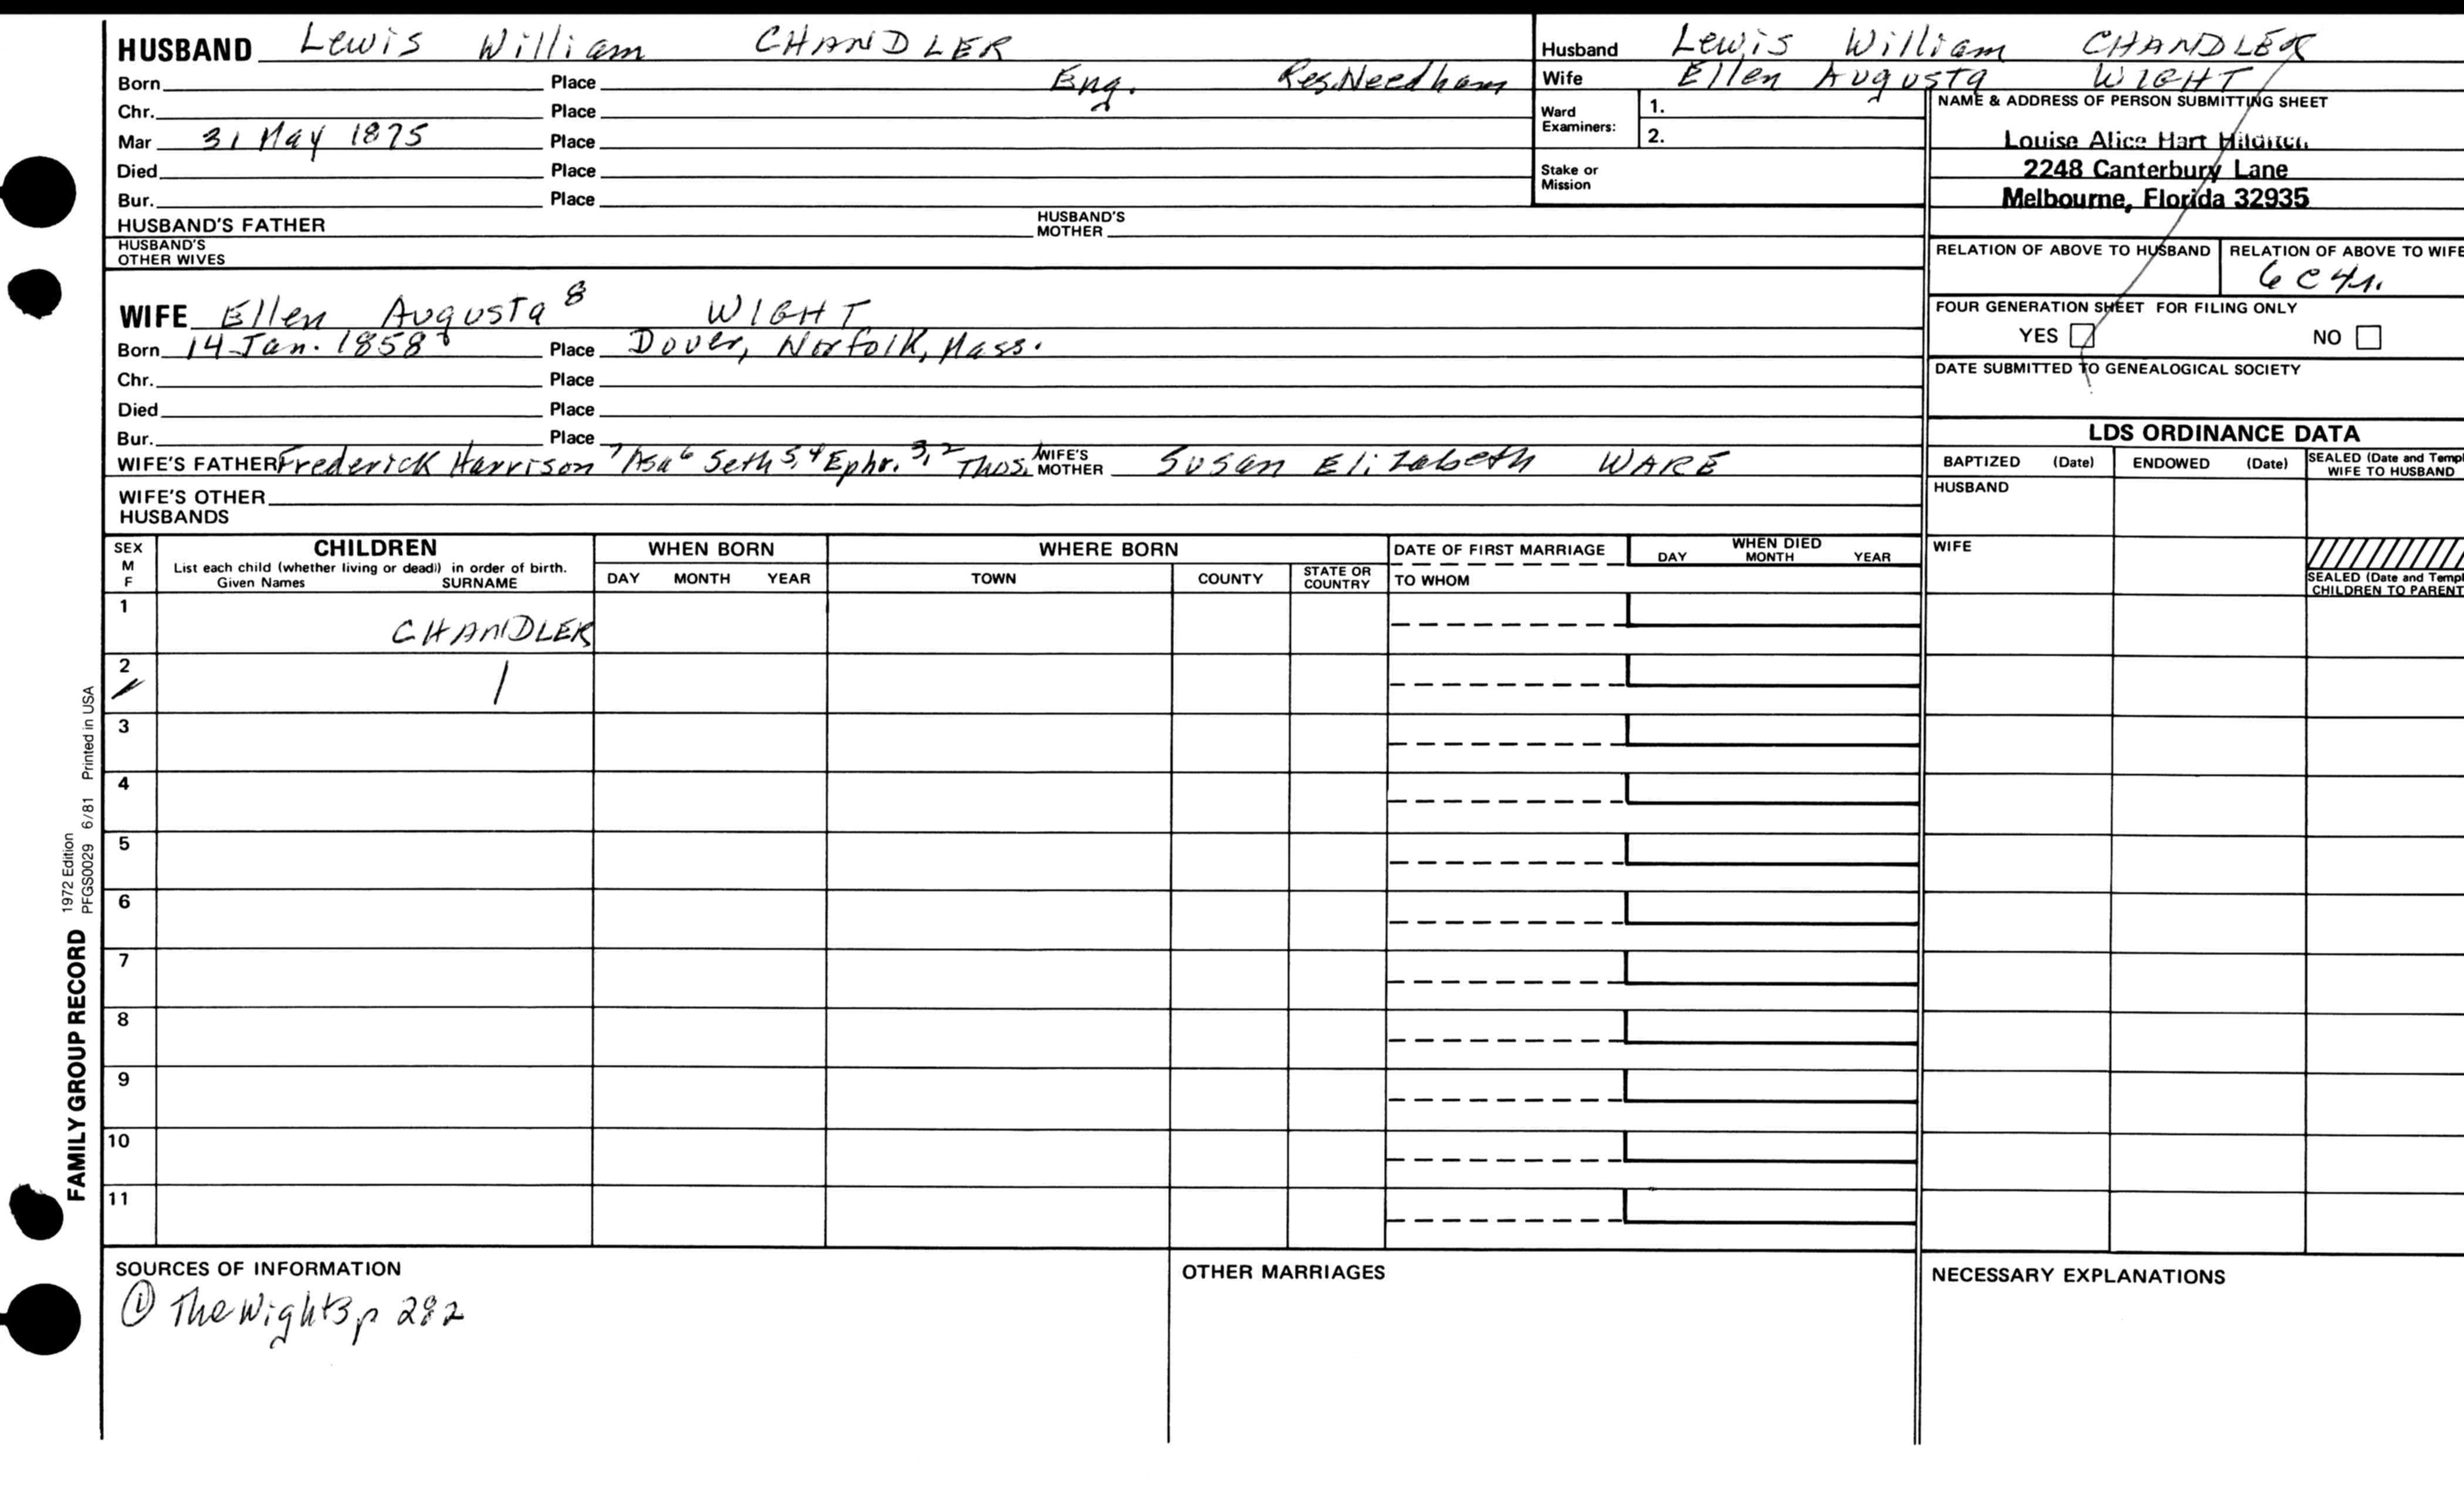 HUSBAND Lewis William CHANDLER
Born Place Eng. Res. Needham
Chr. Place
Mar 31 May 1875 Place
Died Place
Bur. Place
HUSBAND'S FATHER HUSBAND'S MOTHER
HUSBAND'S OTHER WIVES
Husband Lewis William CHANDLER
Wife Ellen Augusta WIGHT
Ward Examiners: 1.
2.
Stake or Mission
NAME & ADDRESS OF PERSON SUBMITTING SHEET
Louise Alice Hart
2248 Canterbury Lane
Melbourne, Florida 32935
RELATION OF ABOVE TO HUSBAND RELATION OF ABOVE TO WIFE
6C4r.
FOUR GENERATION SHEET FOR FILING ONLY
YES NO
DATE SUBMITTED TO GENEALOGICAL SOCIETY
WIFE Ellen Augusta 8 WIGHT
Born 14 Jan. 1858 Place Dover, Norfolk, Mass.
Chr. Place
Died Place
Bur. Place
WIFE'S FATHER Frederick Harrison 7 Asa 6 Seth 5,4 Ephr. 3,2 Thos. 1 WIFE'S MOTHER Susan Elizabeth WARE
WIFE'S OTHER HUSBANDS
LDS ORDINANCE DATA
BAPTIZED (Date) ENDOWED (Date) SEALED (Date and Templ
WIFE TO HUSBAND
HUSBAND
WIFE
SEALED (Date and Templ
CHILDREN TO PARENT
SEX M F
CHILDREN
List each child (whether living or dead) in order of birth.
Given Names SURNAME
WHEN BORN
DAY MONTH YEAR
WHERE BORN
TOWN COUNTY STATE OR COUNTRY
DATE OF FIRST MARRIAGE
TO WHOM
WHEN DIED
DAY MONTH YEAR
1 CHANDLER
2
3
4
5
6
7
8
9
10
11
SOURCES OF INFORMATION
① The Wights p 282
OTHER MARRIAGES
NECESSARY EXPLANATIONS
FAMILY GROUP RECORD
1972 Edition
PFGS0029 6/81 Printed in USA